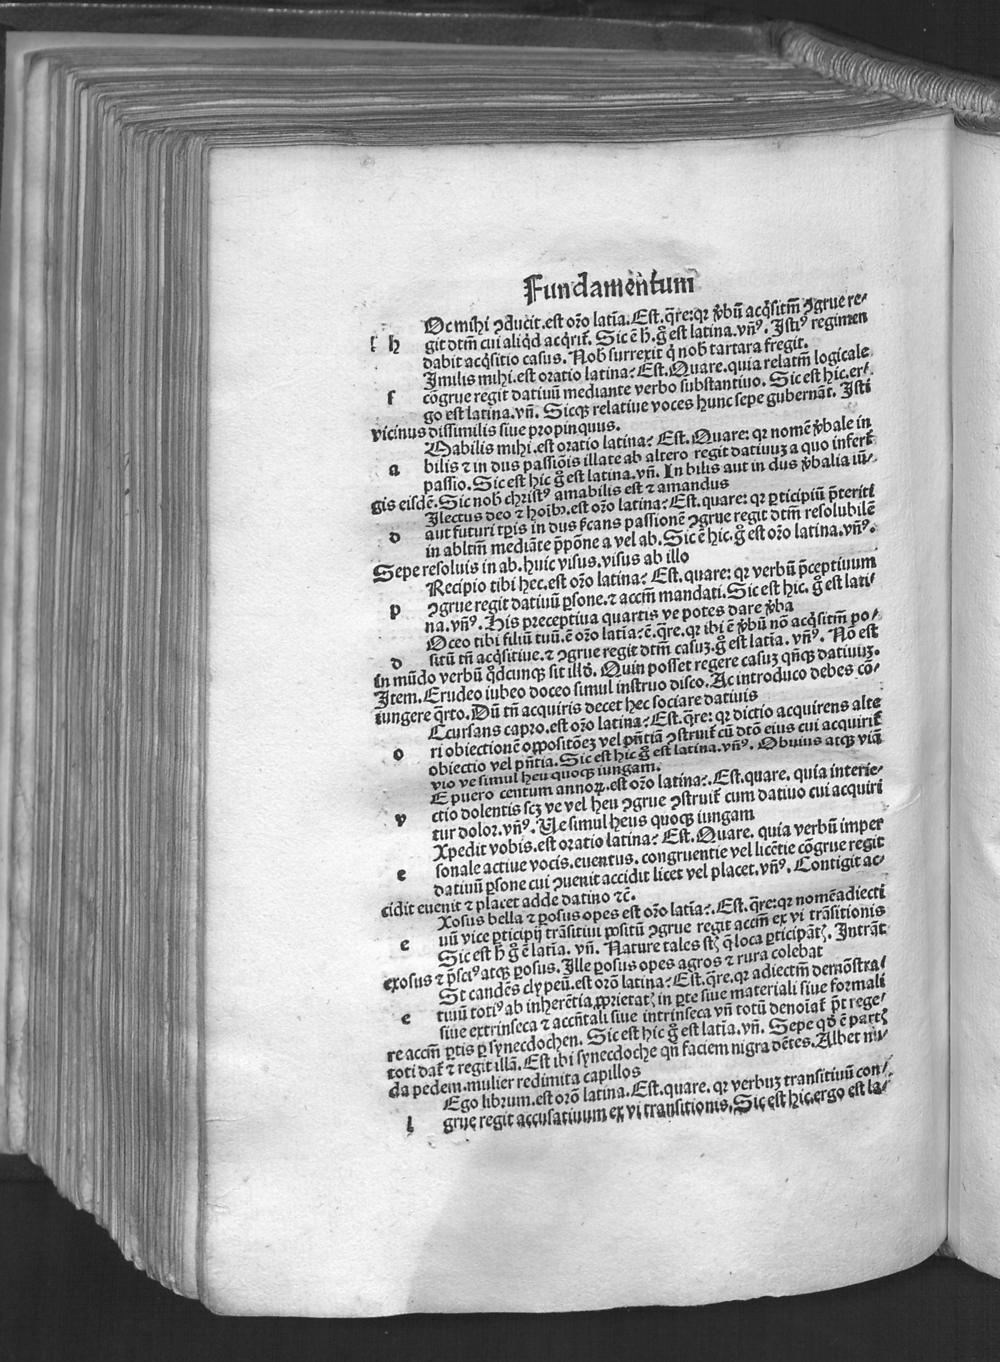 Fundamentum
Oc mihi ꝯducit. est orõ latĩa. Est. q̃re: qr v̾bũ acq̃sitm̃ ꝯgrue re-
h git dtm̃ cui aliq̃d acq̃rit᷑. Sic ẽ h̃. g̊ est latina. vñꝰ. Istiꝰ regimen
dabit acq̃sitio casus. Nob̃ surrexit q̃ nob̃ tartara fregit.
Imilis mihi. est oratio latina: Est. Quare. quia relatm̃ logicale
s cõgrue regit datiuũ mediante verbo substantiuo. Sic est hic. er-
go est latina. vñ. Sicqꝫ relatiue voces hunc sepe gubernãt. Isti
vicinus dissimilis siue propinquus.
Mabilis mihi. est oratio latina: Est. Quare: qr nomẽ v̾bale in
a bilis ⁊ in dus passiõis illate ab altero regit datiuuꝫ a quo infert᷑
passio. Sic est hic g̊ est latina. vñ. In bilis aut in dus v̾balia iũ-
gis eisdẽ. Sic nob̃ christꝰ amabilis est ⁊ amandus
Ilectus deo ⁊ hoĩbꝫ. est orõ latina: Est. quare: qr ꝑticipiũ p̃teriti
d aut futuri tꝑis in dus s̃cans passionẽ ꝯgrue regit dtm̃ resolubilẽ
in abltm̃ mediãte p̃põne a vel ab. Sic ẽ hic. g̊ est orõ latina. vñꝰ.
Sepe resoluis in ab. huic visus. visus ab illo
Recipio tibi hec. est orõ latina: Est. quare: qr verbũ p̃ceptiuum
p ꝯgrue regit datiuũ ꝑsone. ⁊ accm̃ mandati. Sic est hic. g̊ est lati-
na. vñꝰ. His preceptiua quartis ve potes dare v̾ba
Oceo tibi filiũ tuũ. ẽ orõ latĩa: ẽ. q̃re. qr ibi ẽ v̾bũ nõ acq̃sitm̃ po-
d situ tñ acq̃sitiue. ⁊ ꝯgrue regit dtm̃ casuꝫ. g̊ est latĩa. vñꝰ. Nõ est
in mũdo verbũ q̊dcunqꝫ sit illð. Quin posset regere casuꝫ qñqꝫ datiuuꝫ.
Item. Erudeo iubeo doceo simul instruo disco. Ac introduco debes cõ-
iungere q̃rto. Dũ tñ acquiris decet hec sociare datiuis
Ccursans capro. est orõ latina: Est. q̃re: qr dictio acquirens alte
o ri obiectionẽ oppositõeꝫ vel p̃ñtiã ꝯstruit᷑ cũ dtõ eius cui acquirit᷑
obiectio vel p̃ñtia. Sic est hic g̊ est latina. vñꝰ. Obuius atqꝫ viã
vio ve simul heu quoqꝫ iungam.
E puero centum annoꝝ. est orõ latina:. Est. quare. quia interie-
v ctio dolentis scꝫ ve vel heu ꝯgrue ꝯstruit᷑ cum datiuo cui acquiri
tur dolor. vñꝰ. Ve simul heus quoqꝫ iungam
Xpedit vobis. est oratio latina: Est. Quare. quia verbũ imper
e sonale actiue vocis. euentus. congruentie vel licẽtie cõgrue regit
datiuũ ꝑsone cui ꝯuenit accidit licet vel placet. vñꝰ. Contigit ac-
cidit euenit ⁊ placet adde datiuo ⁊c̃.
Xosus bella ⁊ ꝑosus opes est orõ latĩa:. Est. q̃re: qr nomẽ adiecti
e uũ vice ꝑticipij trãsitiui positũ ꝯgrue regit accm̃ ex vi trãsitionis
Sic est h̃ g̊ ẽ latĩa. vñ. Nature tales st̃ q̃ loca ꝑticipãt. Intrãt
exosus ⁊ p̃sciꝰ atqꝫ ꝑosus. Ille ꝑosus opes agros ⁊ rura colebat
St candẽs clypeũ. est orõ latina: Est. q̃re. qr adiectm̃ demõstra-
e tiuũ totiꝰ ab inherẽtia ꝓprietat in ꝑte siue materiali siue formali
siue extrinseca ⁊ accñtali siue intrinseca vñ totũ denoĩat᷑ p̃t rege-
re accm̃ ꝑtis ꝑ synecdochen. Sic est hic g̊ est latĩa. vñ. Sepe qð ẽ part
toti dat᷑ ⁊ regit illã. Est ibi synecdoche qñ faciem nigra dẽtes. Albet nu-
da pedem. mulier redimita capillos
Ego librum. est orõ latina. Est. quare. qr verbuꝫ transitiuũ con-
l grue regit accusatiuum ex vi transitionis. Sic est hic. ergo est la-